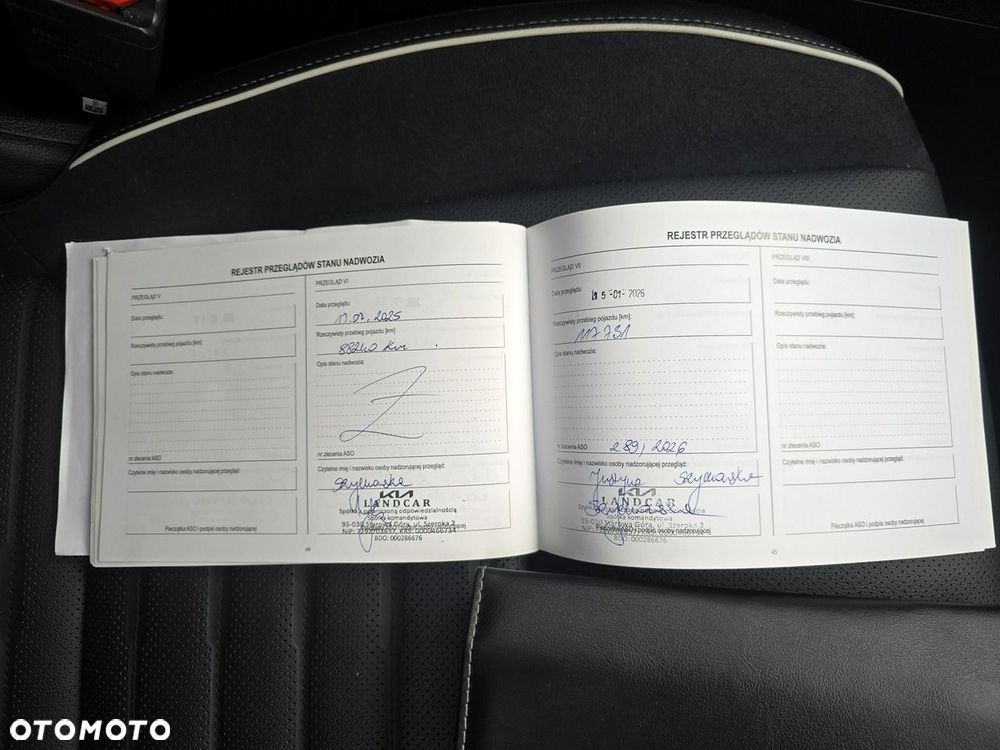 REJESTR PRZEGLĄDÓW STANU NADWOZIA
PRZEGLĄD V
Data przeglądu:
Rzeczywisty przebieg pojazdu [km]:
Opis stanu nadwozia:
nr zlecenia ASO
Czytelne imię i nazwisko osoby nadzorującej przegląd:
Pieczątka ASO i podpis osoby nadzorującej
PRZEGLĄD VI
Data przeglądu:
2025
Rzeczywisty przebieg pojazdu [km]:
88240 km
Opis stanu nadwozia:
Z
nr zlecenia ASO
Czytelne imię i nazwisko osoby nadzorującej przegląd:
KIA
LANDCAR
Spółka z ograniczoną odpowiedzialnością
Spółka komandytowa
95-030 Starowa Góra, ul. Szeroka 2
BDO: 000286676
44
REJESTR PRZEGLĄDÓW STANU NADWOZIA
PRZEGLĄD VII
Data przeglądu:
15-01-2026
Rzeczywisty przebieg pojazdu [km]:
117731
Opis stanu nadwozia:
nr zlecenia ASO 289/2026
Czytelne imię i nazwisko osoby nadzorującej przegląd:
Justyna
KIA
LANDCAR
Spółka komandytowa
95-030 Starowa Góra, ul. Szeroka 2
BDO: 000286676
PRZEGLĄD VIII
Data przeglądu:
Rzeczywisty przebieg pojazdu [km]:
Opis stanu nadwozia:
nr zlecenia ASO
Czytelne imię i nazwisko osoby nadzorującej przegląd:
Pieczątka ASO i podpis osoby nadzorującej
45
OTOMOTO